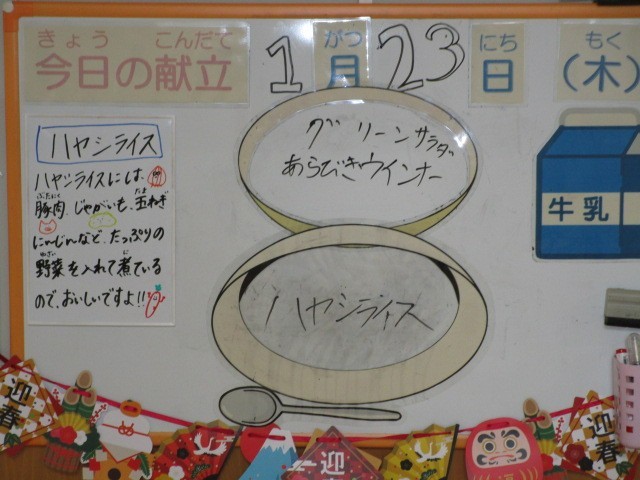 きょう こんだて がつ にち もく
今日の献立 1月23日（木）
グリーンサラダ
あらびきウインナー
ハヤシライス
牛乳
ハヤシライス
ハヤシライスには、
ぶたにく たま
豚肉、じゃがいも、玉ねぎ
にんじんなど、たっぷりの
やさい に
野菜を入れて煮ている
ので、おいしいですよ!!
迎春
迎春
迎